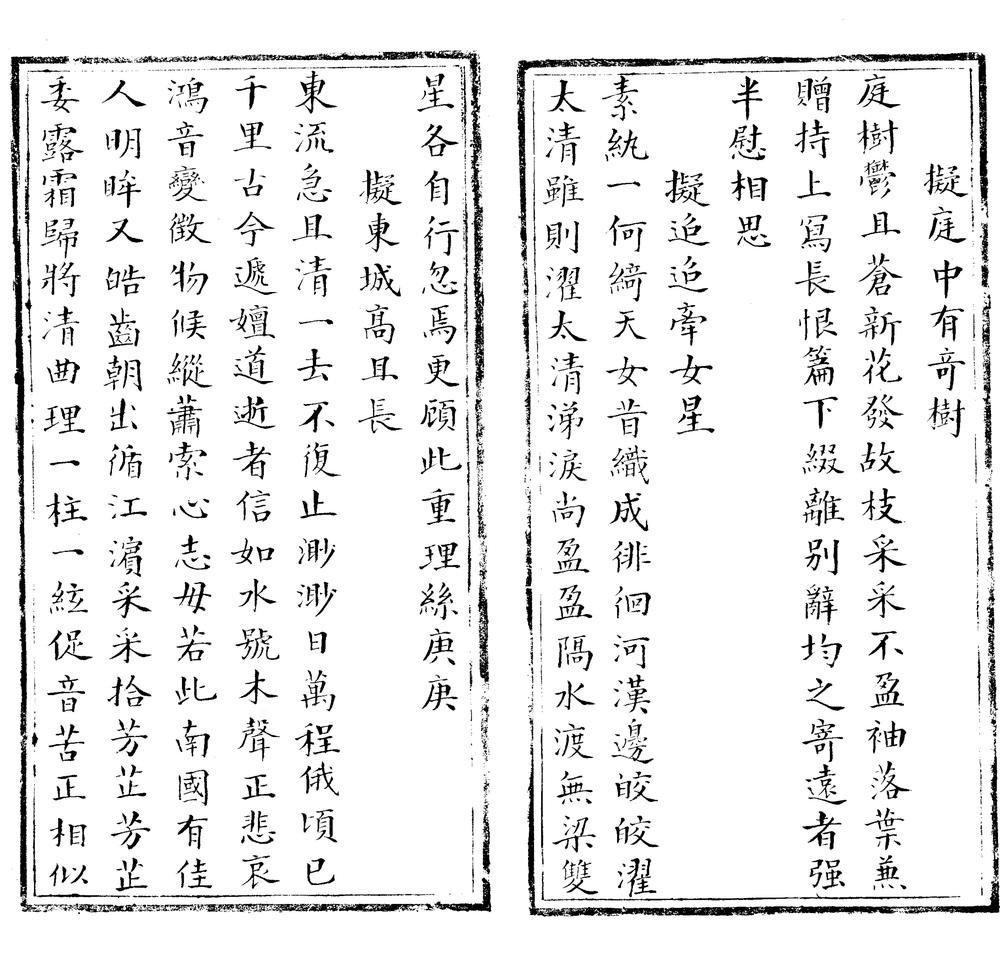 擬庭中有奇樹
庭樹鬱且蒼新花發故枝采采不盈袖落葉兼
贈持上寫長恨篇下綴離別辭均之寄遠者强
半慰相思
擬迢迢牽女星
素紈一何綺天女昔織成徘徊河漢邊皎皎濯
太清雖則濯太清涕淚尚盈盈隔水渡無梁雙
星各自行忽焉更顧此重理絲庚庚
擬東城高且長
東流急且清一去不復止渺渺日萬程俄頃已
千里古今遞嬗道逝者信如水號木聲正悲哀
鴻音變徵物候縱蕭索心志毋若此南國有佳
人明眸又皓齒朝出循江濱采采拾芳芷芳芷
委露霜歸將清曲理一柱一絃促音苦正相似